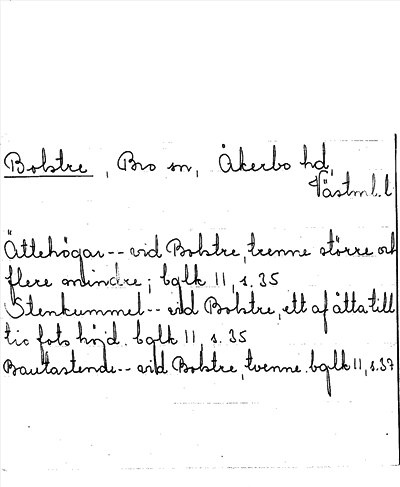 Bolstre, Bro sn, Åkerbo hd,
Västml. l
Ättehögar -- vid Bolstre, trenne större och
flere mindre; bglk 11, s. 35
Stenkummel -- vid Bolstre, ett af åtta till
tio fots höjd. bglk 11, s. 35
Bautastenar -- vid Bolstre, tvenne. bglk 11, s. 37